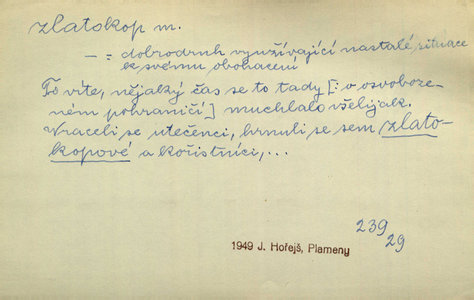 zlatokop m.
— = dobrodruh využívající nastalé situace
k svému obohacení
To víte, nějaký čas se to tady [: v osvoboze-
ném pohraničí] muchlalo všelijak.
Vraceli se utečenci, hrnuli se sem zlato-
kopové a kořistníci,...
239
29
1949 J. Hořejš, Plameny